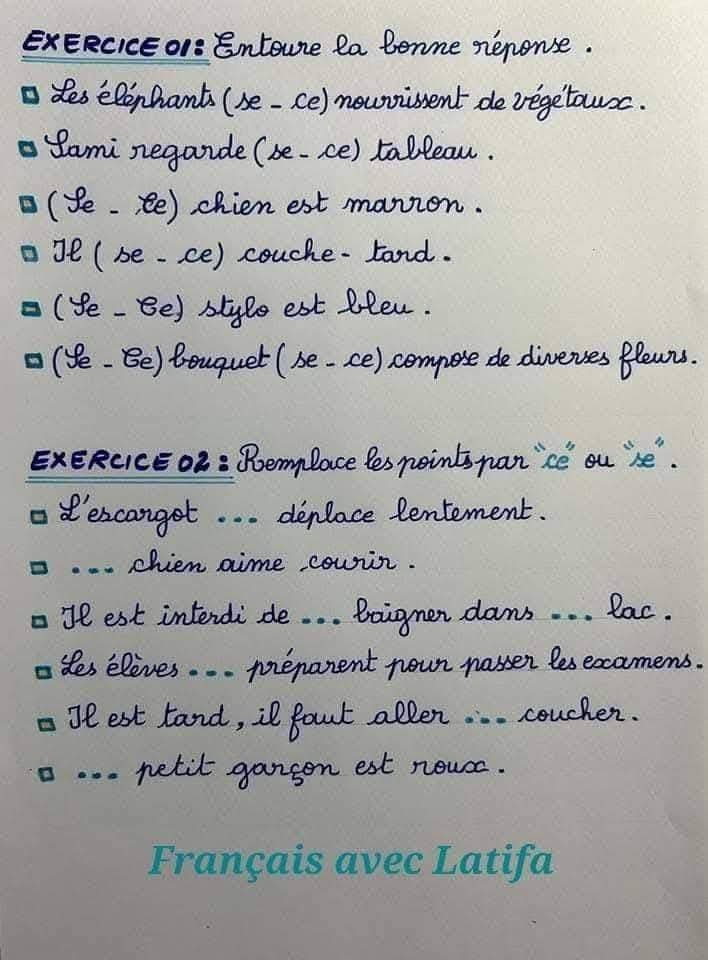 EXERCICE 01: Entoure la bonne réponse.
Les éléphants (se - ce) nourrissent de végétaux.
Sami regarde (se - ce) tableau.
(Se - Ce) chien est marron.
Il (se - ce) couche- tard.
(Se - Ce) stylo est bleu.
(Se - Ce) bouquet (se - ce) compose de diverses fleurs.
EXERCICE 02: Remplace les points par "ce" ou "se".
L'escargot ... déplace lentement.
... chien aime courir.
Il est interdi de ... baigner dans ... lac.
Les élèves ... préparent pour passer les examens.
Il est tard, il faut aller ... coucher.
... petit garçon est roux.
Français avec Latifa